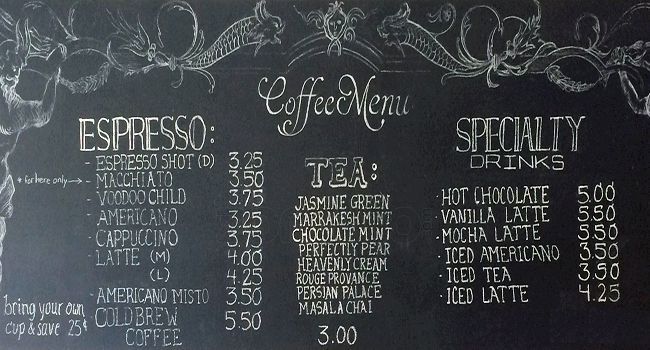 Coffee Menu
ESPRESSO:
- ESPRESSO SHOT (D) 3.25
* for here only → - MACCHIATO 3.50
- VOODOO CHILD 3.75
- AMERICANO 3.25
- CAPPUCCINO 3.75
- LATTE (M) 4.00
(L) 4.25
- AMERICANO MISTO 3.50
- COLD BREW
COFFEE 5.50
bring your own
cup & save 25¢
TEA:
JASMINE GREEN
MARRAKESH MINT
CHOCOLATE MINT
PERFECTLY PEAR
HEAVENLY CREAM
ROUGE PROVANCE
PERSIAN PALACE
MASALA CHAI
3.00
SPECIALTY
DRINKS
- HOT CHOCOLATE 5.00
- VANILLA LATTE 5.50
- MOCHA LATTE 5.50
- ICED AMERICANO 3.50
- ICED TEA 3.50
- ICED LATTE 4.25